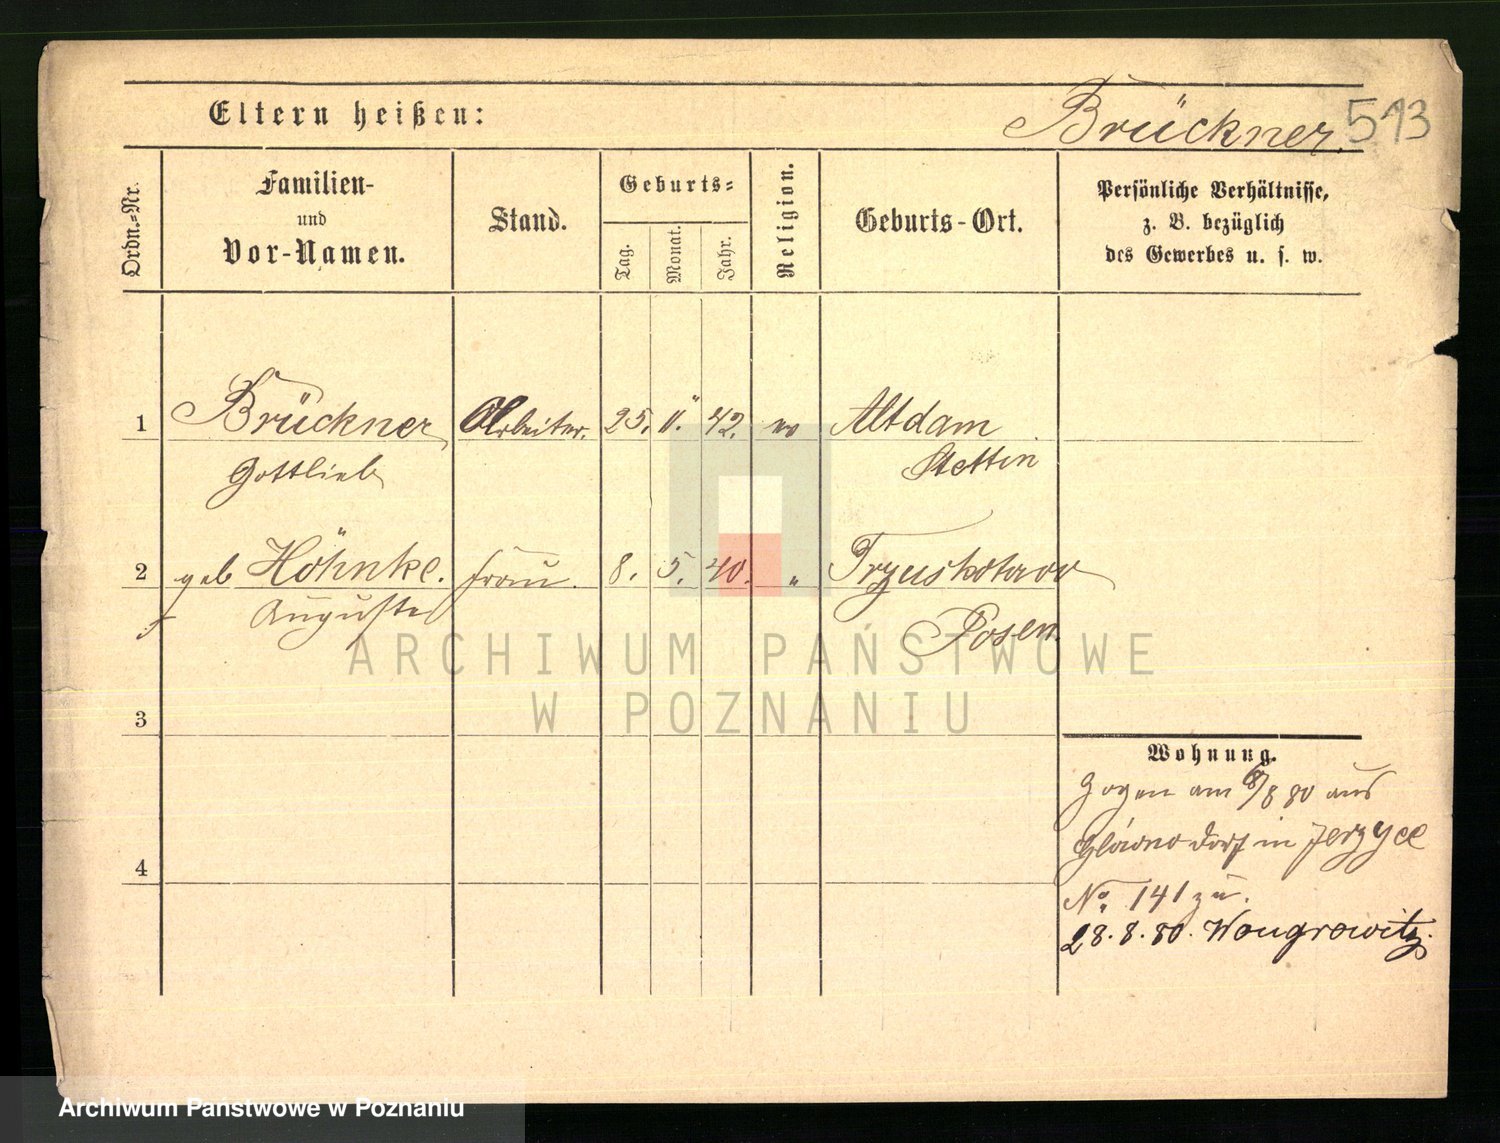 Eltern heißen:
Brückner.
513
Ordn.=Nr.
Familien-
und
Vor-Namen.
Stand.
Geburts=
Tag.
Monat.
Jahr.
Religion.
Geburts-Ort.
Persönliche Verhältnisse,
z. B. bezüglich
des Gewerbes u. s. w.
1 Brückner Arbeiter. 25. 42. ev Altdam
Gottlieb Stettin
2 geb Höhnke. Frau. 8. 5. 40. „
Auguste Posen.
3
4
Wohnung.
Zogen am 8/8 80 aus
Główno Dorf in Jerzyce
No. 141 zu.
28.8.80. Wongrowitz.
ARCHIWUM PAŃSTWOWE
W POZNANIU
Archiwum Państwowe w Poznaniu